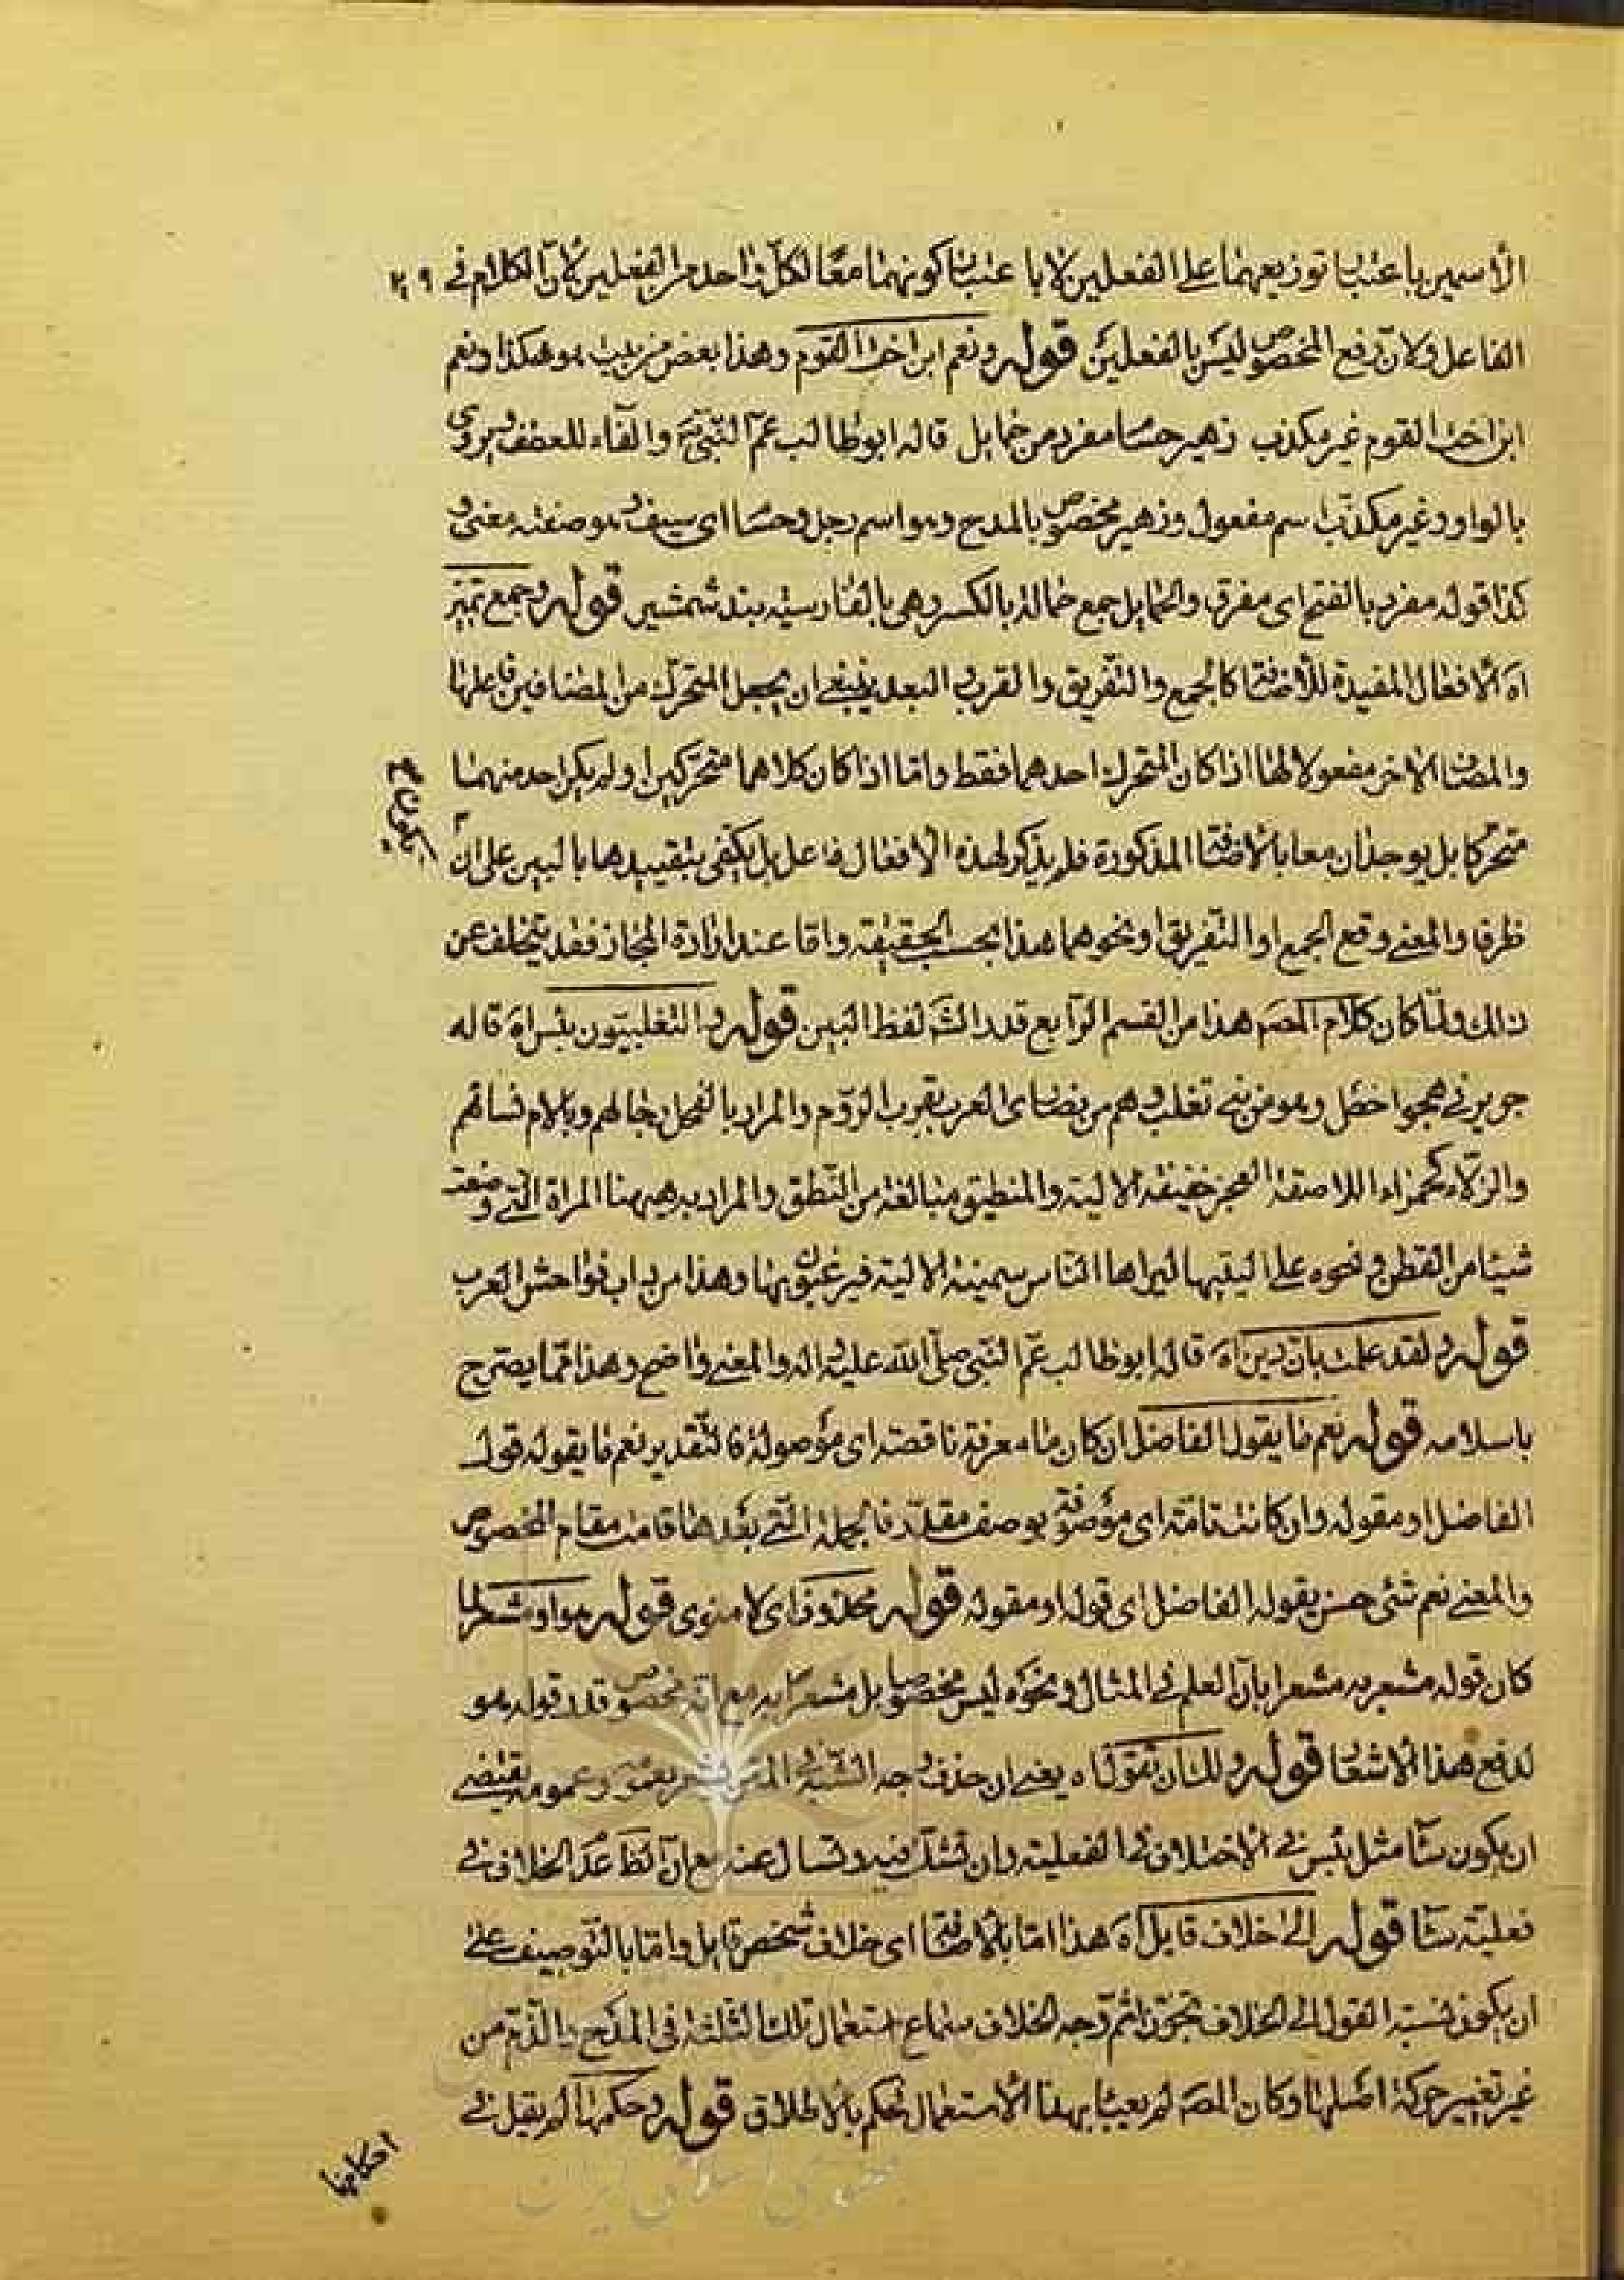 الأسمين باعتبار توزيعهما على الفعلين لا باعتبار كونهما معًا لكلّ واحد من الفعلين لأنّ الكلام في ٢٩
الفاعل ولان رفع المخصوص ليس بالفعلين قوله ونعم ابن اخت القوم وهذا بعض من بيت هو هكذا ونعم
ابن اخت القوم غير مكذب زهير حساما مفرد من حمايل قاله ابوطالب عمّ النّبيّ ص والفاء للعطف ويروى
بالواو وغير مكذب اسم مفعول وزهير مخصوص بالمدح وهو اسم رجل وحساما اى سيف وهو صفته معنى و
كذا قوله مفرد بالفتح اى مفرق والحمايل جمع حمالة بالكسر وهى بالفارسية بند شمشير قوله وجمع تميز
اه الأفعال المفيدة للأضافة كالجمع والتّفريق والقرب والبعد ينبغى ان يجعل المتحرّك من المضافين فاعلا لها
والمضاف الاخر مفعولا لها اذا كان المتحرك احدهما فقط وامّا اذا كان كلاهما متحرّكين او لم يكن احد منهما
متحرّكا بل يوجدان معا بالأضافة المذكورة فلم يذكر لهذه الأفعال فاعل بل يكتفى بتقييدها بالبين على ان
يكون
ظرفا والمعنى وقع الجمع او التّفريق او نحوهما هذا بحسب الحقيقة وامّا عند ارادة المجاز فقد يتخلف عن
ذلك ولمّا كان كلام المصّ هذا من القسم الرّابع قدر الشّ لفظ البين قوله والتغلبيّون بئس اه قاله
جرير فى هجو اخطل وهو من بنى تغلب وهم من نصارى العرب بقرب الرّوم والمراد بالفحل رجالهم وبالام نسائهم
والزّلاء كحمراء اللاصقة العجز خفيفة الالية والمنطيق مبالغة من النّطق والمراد به هيهنا المراة الّتى وضعت
شيئا من القطن ونحوه على اليتيها ليراها النّاس سمينة الالية فيرغبوا بها وهذا من باب فواحش العرب
قوله ولقد علمت بانّ دين اه قاله ابوطالب عمّ النّبى صلّى الله عليه واله والمعنى واضح وهذا ممّا يصرح
باسلامه قوله نعم ما يقول الفاضل ان كان ما معرفة ناقصة اى موصولة فالتّقدير نعم ما يقوله قول
الفاضل او مقوله وان كانت تامّة اى موصوفة بوصف مقدّر فالجملة الّتى بعدها قامت مقام المخصوص
والمعنى نعم شئ حسن يقوله الفاضل اى قوله او مقوله قوله محذوف اى لا منوى قوله هو او مشعر لما
كان قوله مشعر به مشعرا بانّ العلم فى المثال ونحوه ليس مخصوصا بل مشعرا به مع انّه مخصوص قدر قوله هو
لدفع هذا الاشعار قوله ولك ان تقول اه يعنى ان حذف وجه الشّبه وعمومه يقتضى
ان يكون ساء مثل بئس فى الاختلاف فى الفعلية وان تشك فيه وتسال عنه مع انّ عدّ الخلاف فى
فعليّة ساء قوله الى خلاف قايل اه هذا امّا بالأضافة اى خلاف شخص قايل وامّا بالتّوصيف على
ان يكون نسبة القول الى الخلاف تجوّزا ثم وجه الخلاف سماع استعمال تلك الثلثة فى المدح والذّم من
غير تغيير حركة اصلها وكان المصّ لم يعبأ بهذا الأستعمال فحكم بالأطلاق قوله وحكمها لم يقل فى
احكامها